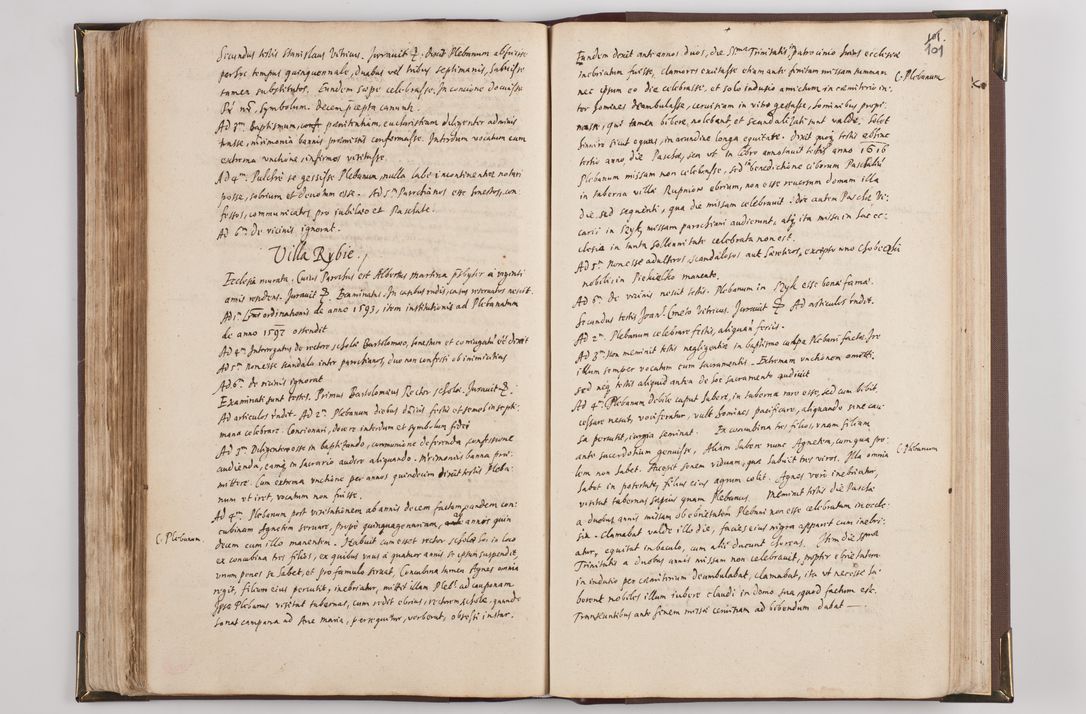 Secundus testis Stanislaus Vitricus. Juravit. Dixit Plebanum abfuisse
per hoc tempus quinquennale, duabus vel tribus septimanis, habuisse
tamen substitutos. Eundem sæpe celebrasse. In concione docuisse
Symbolum. Decem præcepta canunt.
Ad 3m Baptismum, conf. pœnitentiam, eucharistiam diligenter adminis
trasse, matrimonia bannis præmissis confirmasse. Interdum vocatum cum
extrema unctione infirmos visitasse.
Ad 4m. Pulchre se gessisse Plebanum, nulla labe incontinentiæ notari
posse, sobrium et devotum esse. Ad 5m Parochianos esse honestos, con
fessos, communicatos pro iubilæo et Paschate.
Ad 6m De vicinis ignorat.
Villa Rybie.
Ecclesia murata. Cuius Parochus est Albertus Martina pbyter a viginti
annis residens. Juravit. Examinatus. In casibus rudis, casus reservatos nescit.
Ad 1m ordinationis de anno 1593, item institutionis ad Plebanatum
de anno 1597 ostendit
Ad 4m Interrogatus de rectore scholæ Bartholomeo, honestum et coniugatum dixit
Ad 5m Non esse scandala inter parochianos, duo non confessi ob inimicitias
Ad 6m. de vicinis ignorat
Examinati sunt testes. Primus Bartolomæus Rector scholæ. Juravit.
Ad articulos Ad 2m. Plebanum diebus festis et semel in septi
mana celebrare. Concionari, docere interdum et symbolum fidei
Ad 3m Diligentem esse in baptisando, communione deferenda, confessione
audienda, eamque in sacrario audire aliquando. Matrimoniis banna præ
mittere. Cum extrema unctione per annos quindecim dixit testis Pleba
num ut iret, vocatum non fuisse.
Ad 4m Plebanum post visitationem ab annis decem factam, eandem con
cubinam Agnetem servare, prope quinquagenariam, annos quin
decem cum illo manentem. Habuit cum esset rector scholæ hoc in loco
C. Plebanum.
ex concubina tres filios, ex quibus unus a quatuor annis se ipsum suspendit,
unum penes se habet, et pro famulo servat, Concubina tamen Agnes omnia
regit, filium eius percutit, inebriatur, mittit illam ad cauponam
Ipse Plebanus visitat tabernas, cum redit ebrius, rectorem scholæ, quando
sonat campana ad Ave Maria, persequitur, verberat, obsessi instar.
101.
101
Eundem dixit ante annos duos, die SSmæ Trinitatis patrocinio huius ecclesiæ
inebriatum fuisse, clamores excitasse etiam ante finitam missam summam
C. Plebanum
nec ipsum eo die celebrasse, et solo indusio amictum, in cœmiterio in
ter homines deambulasse, cervisiam in vitro gestasse, hominibus propi
nasse, qui tamen bibere nolebant, et scandalisati sunt valde. Solet
hinnire sicut equus, in arundine longa equitare. Dixit testis
tertio anno, die Paschæ, seu ut in libro annotavit testis anno 1616
Plebanum missam non celebrasse, sed benedictione ciborum Paschali
in taberna villæ Rupniow ebrium, non esse reversum domum illa
die, sed sequenti, qua die missam celebravit. Die autem Paschæ Vi
carii in Szyk missam parochiani audierunt, atque ita missa in hac ec
clesia in tanta sollennitate celebrata non est.
Ad 5m Non esse adulteros scandalosos aut hæreticos, excepto uno
nobili, in Piekielko manente.
Ad 6m De vicinis nescit testis. Plebanum in Szyk esse bonæ famæ.
Secundus testis Joan. Vitricus. Juravit. Ad articulos
Ad 2m. Plebanum celebrare festis, aliquando feriis.
Ad 3m Non meminit testis negligentiæ in baptismo culpa Plebani factæ, ire
illum semper vocatum cum sacramentis. Extremam unctionem omitti,
sed neque testis aliquid antea de hoc sacramento audivit
Ad 4m. Plebanum debile caput habere, in taberna raro esse, sed cum bibit,
cessare nescit, vociferatur, vult homines pacificare, aliquando sine cau
sa percutit, iurgia seminat. Ex concubina tres filios, unam filiam
ante sacerdotium genuisse, Aliam habere nunc Agnetem, cum qua pro
lem non habet. Accepit senem viduam, quæ habuit tres viros. Illa omnia
C. Plebanum
habet in potestate, filius eius agrum colit. Agnes vero inebriatur,
visitat tabernas sæpius quam Plebanus. Meminit testis die Paschæ
a duobus annis missam ob ebrietatem Plebani non esse celebratam in eccle
sia. Clamabat valde illo die, facies eius nigra apparet cum inebri
atur, equitat in baculo, cum alii ducunt choreas. Item die SSmæ
Trinitatis a duobus annis missam non celebravit, propter ebrietatem
in indusio per cœmiterium deambulabat, clamabat, ita ut necesse ha
berent nobiles illum iubere claudi in domo sua, quod factum est.
Transeuntibus ante finem missæ cervisiam ad bibendum dabat —.